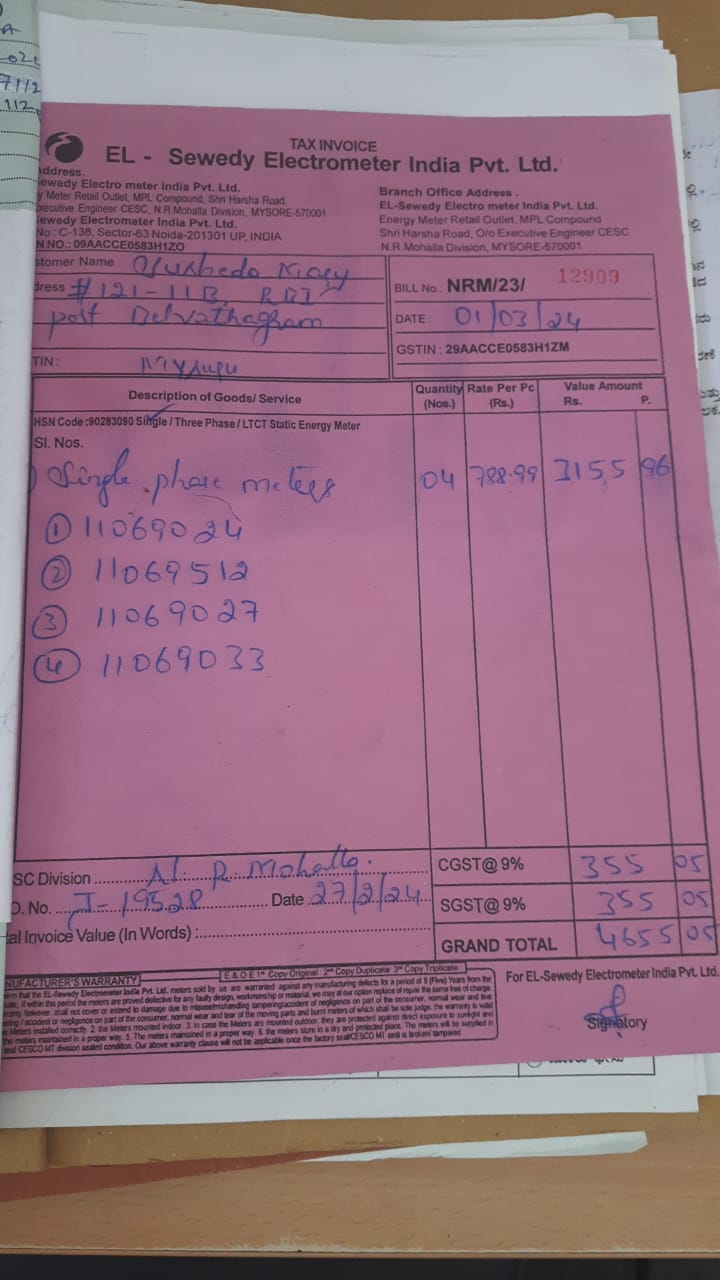 TAX INVOICE
EL - Sewedy Electrometer India Pvt. Ltd.
ddress.
ewedy Electro meter India Pvt. Ltd.
y Meter Retail Outlet, MPL Compound, Shri Harsha Road,
xecutive Engineer CESC, N.R.Mohalla Division, MYSORE-570001
ewedy Electrometer India Pvt. Ltd.
No : C-138, Sector-63 Noida-201301 UP, INDIA
N NO.: 09AACCE0583H1ZO
Branch Office Address .
EL-Sewedy Electro meter India Pvt. Ltd.
Energy Meter Retail Outlet, MPL Compound
Shri Harsha Road, O/o Executive Engineer CESC
N.R.Mohalla Division, MYSORE-570001
stomer Name
dress # 121-11B, RBI
post Belvathagram
TIN : Mysuru
BILL No.: NRM/23/ 12909
DATE : 01/03/24
GSTIN : 29AACCE0583H1ZM
Description of Goods/ Service
Quantity (Nos.)
Rate Per Pc (Rs.)
Value Amount Rs. P.
HSN Code :90283090 Single / Three Phase / LTCT Static Energy Meter
Sl. Nos.
) Single phase meters 04 788.99 3155 96
① 11069024
② 11069512
③ 11069027
④ 11069033
SC Division N. R. Mohalla.
CGST@ 9% 355 05
O. No. J-19528 Date 27/2/24
SGST@ 9% 355 05
tal Invoice Value (In Words) :
GRAND TOTAL 4655 05
E & O E 1st Copy Original : 2nd Copy Duplicate 3rd Copy Triplicate
NUFACTURER'S WARRANTY
For EL-Sewedy Electrometer India Pvt. Ltd.
Signatory